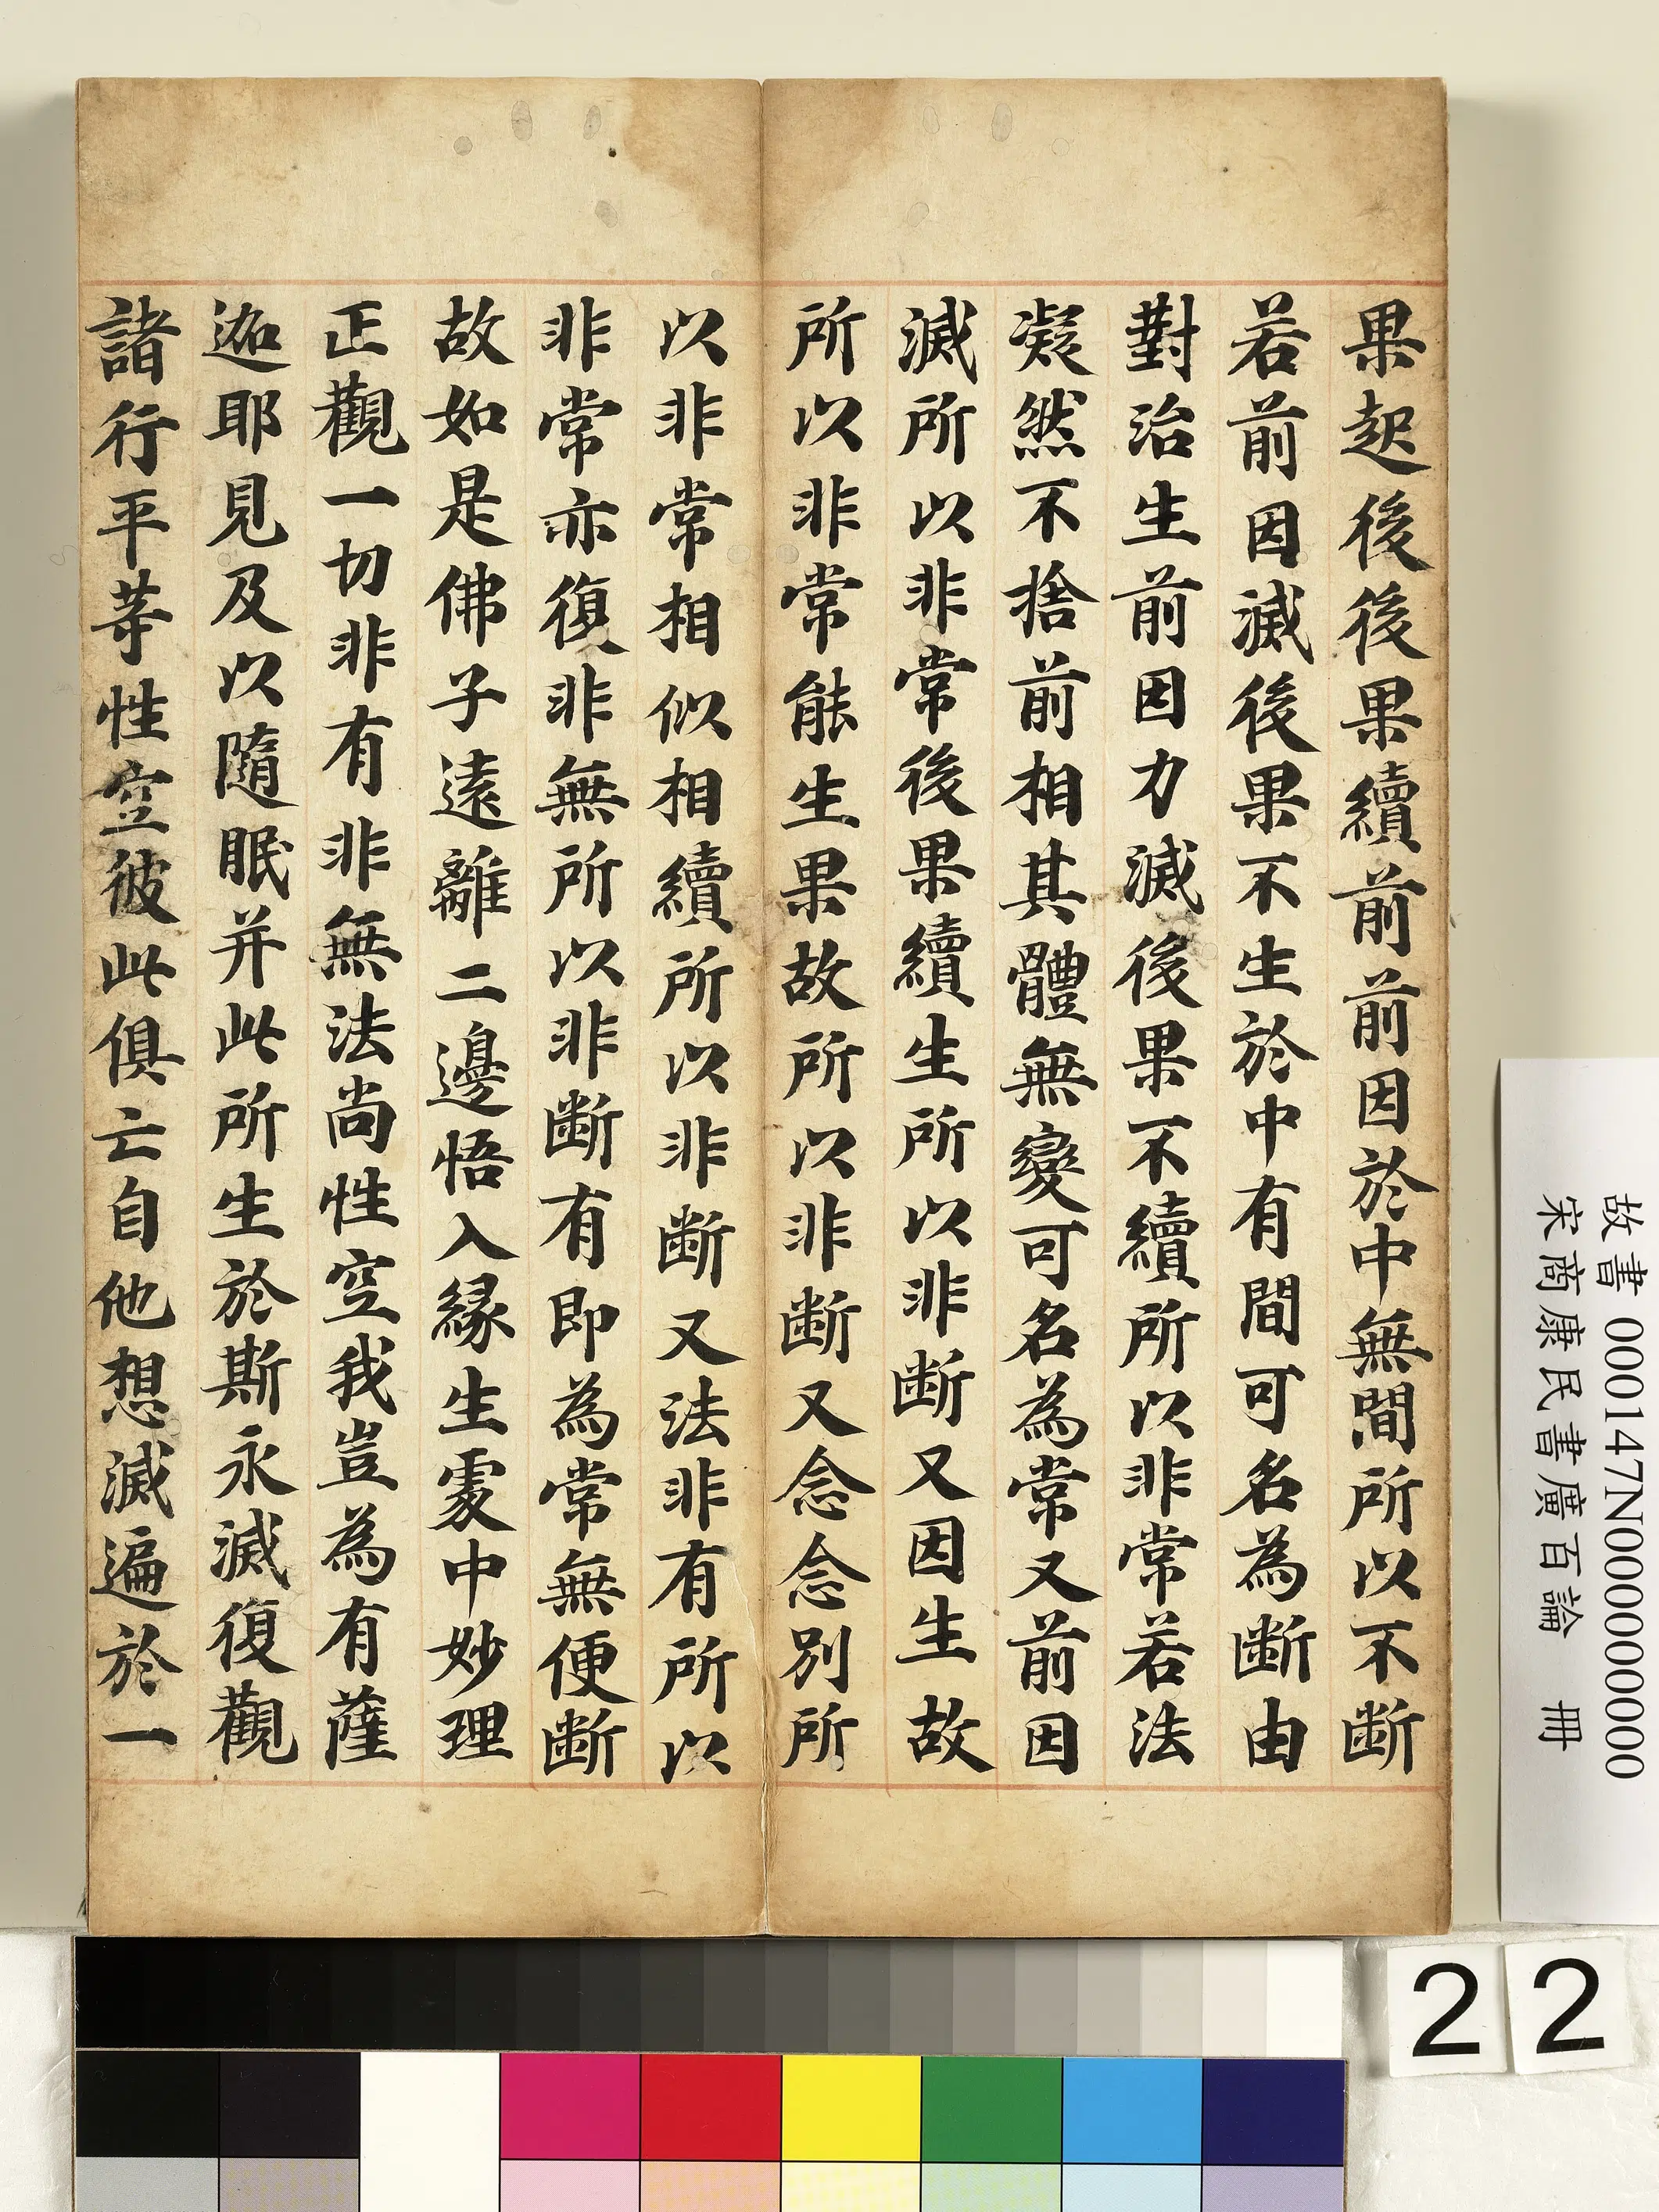 果起後後果續前前因於中無間所以不斷
若前因滅後果不生於中有間可名為斷由
對治生前因力滅後果不續所以非常若法
凝然不捨前相其體無變可名為常又前因
滅所以非常後果續生所以非斷又因生故
所以非常能生果故所以非斷又念念別所
以非常相似相續所以非斷又法非有所以
非常亦復非無所以非斷有即為常無便斷
故如是佛子遠離二邊悟入緣生處中妙理
正觀一切非有非無法尚性空我豈為有薩
迦耶見及以隨眠并此所生於斯永滅復觀
諸行平等性空彼此俱亡自他想滅遍於一
故書 000147N000000000
宋商康民書廣百論 冊
22